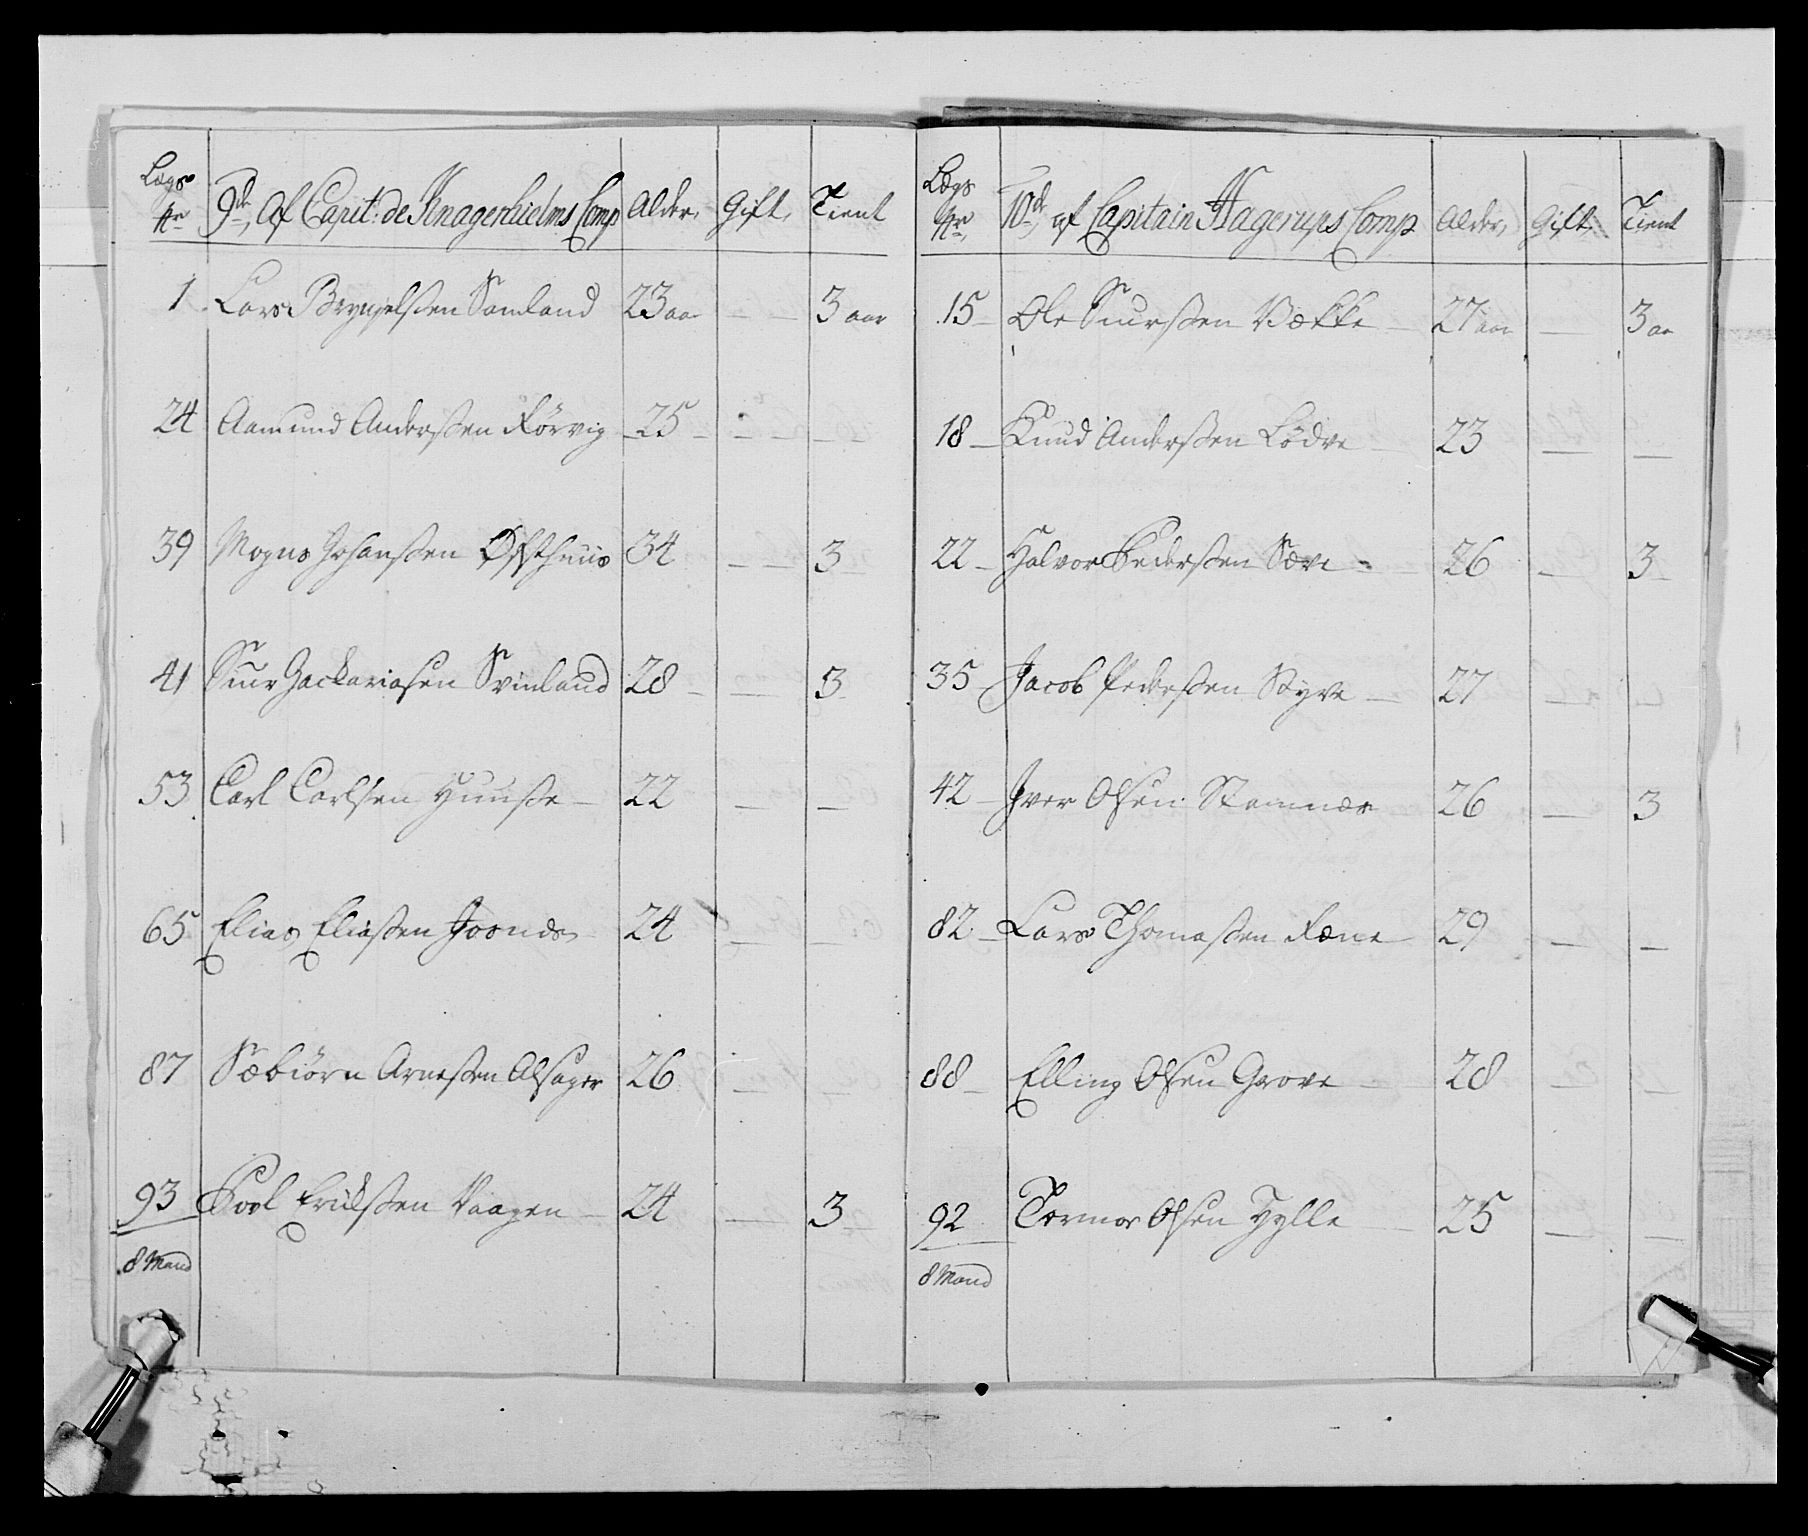 Lægs Nr 9de, Af Capit: de Knagenhielms Comp Alder, Gift, Tient
1 Lars Bryngelsen Samland 23 aar — — 3 aar
24 Aamund Anderßen Rørvig 25 — — —
39 Mogns Johanßen Østhuus 34 — — 3
41 Siur Zackariasen Svinland 28 — — 3
53 Carl Carlsen Huuse — 22 — —
65 Elias Eliaßen 24 — —
87 Sæbiørn Arneßen Alsager 26 — —
93 Poel Erichßen Vaagen — 24 — 3
8 Mand
Lægs Nr, 10de, af Capitain Hagerups Comp Alder, Gift, Tient
15 Ole Siurßen Bække — 27 aar — 3 aar
18 — Knud Anderßen Lødve — 23 — —
22 — Halvor Pederßen Sæve — 26 — 3
35 Jacob Pederßen Styve — 27 —
42 — Iver Olsen Stamnæs 26 — 3
82 — Lars Thomaßen Ræne 29 — —
88 — Elling Olsen Grove — 28 — —
92 Tormor Olsen Hylle — 25 — —
8 Mand